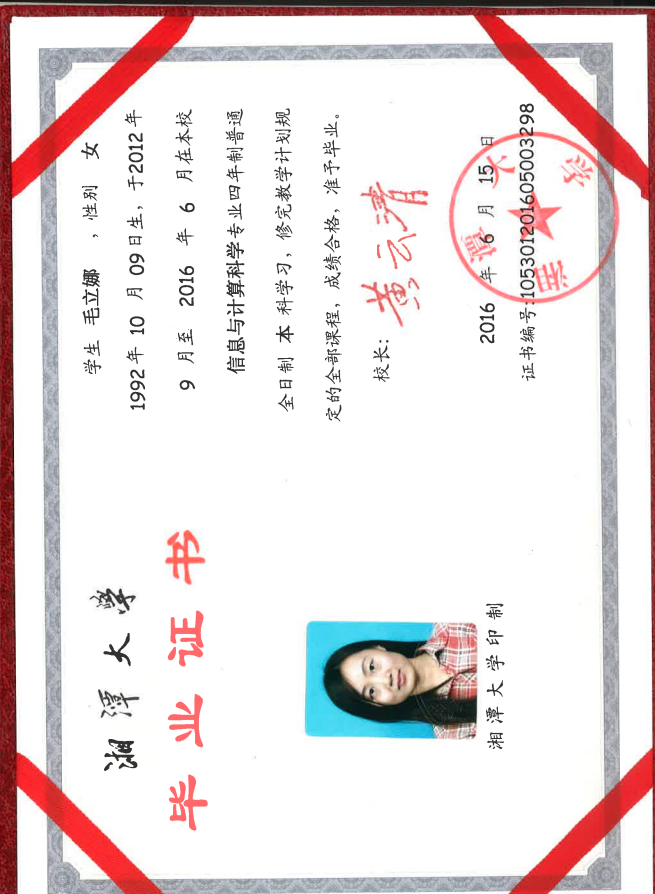 湘潭大学
毕业证书
湘潭大学印制
学生 毛立娜 ，性别 女
1992年 10 月 09日生，于2012年
9 月至 2016 年 6 月在本校
信息与计算科学专业四年制普通
全日制 本 科学习，修完教学计划规
定的全部课程，成绩合格，准予毕业。
校长：
黄云清
2016 年 6 月 15 日
证书编号:105301201605003298
湘潭大学